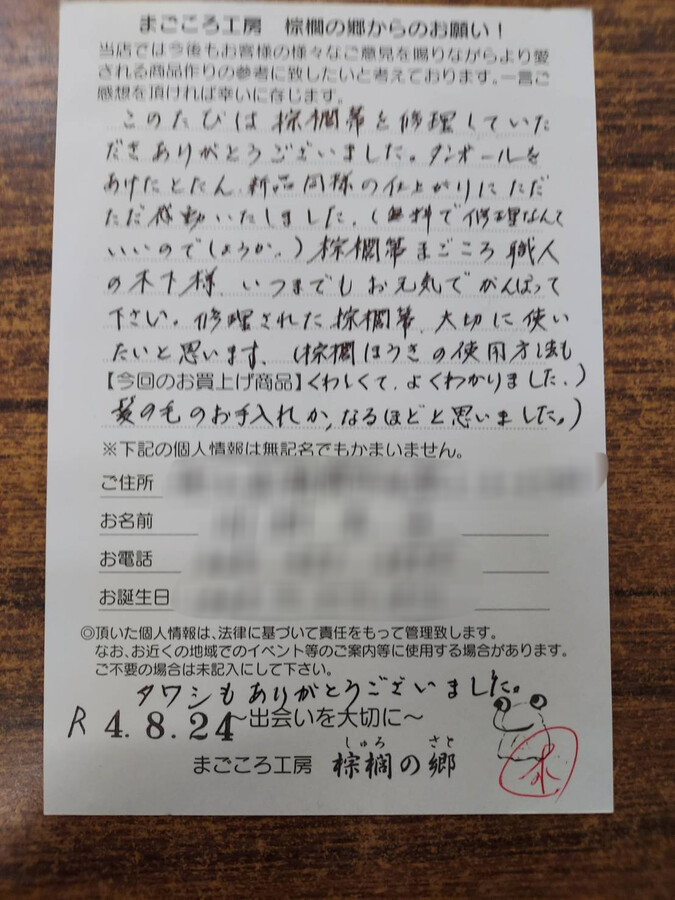 まごころ工房 棕櫚の郷からのお願い！
当店では今後もお客様の様々なご意見を賜りながらより愛
される商品作りの参考に致したいと考えております。一言ご
感想を頂ければ幸いに存じます。
このたびは棕櫚箒を修理していた
だきありがとうございました。ダンボールを
あけたとたん、新品同様の仕上がりにただ
ただ感動いたしました。(無料で修理なんて
いいのでしょうか。)棕櫚箒まごころ職人
の木下様、いつまでもお元気でがんばって
下さい。修理された棕櫚箒、大切に使い
たいと思います。(棕櫚ほうきの使用方法も
【今回のお買上げ商品】くわしくて、よくわかりました。)
髪の毛のお手入れか、なるほどと思いました。)
※下記の個人情報は無記名でもかまいません。
ご住所
お名前
お電話
お誕生日
◎頂いた個人情報は、法律に基づいて責任をもって管理致します。
なお、お近くの地域でのイベント等のご案内等に使用する場合があります。
ご不要の場合は未記入にして下さい。
タワシもありがとうございました。
R 4.8.24 ～出会いを大切に～
まごころ工房 棕櫚の郷
しゅろ さと